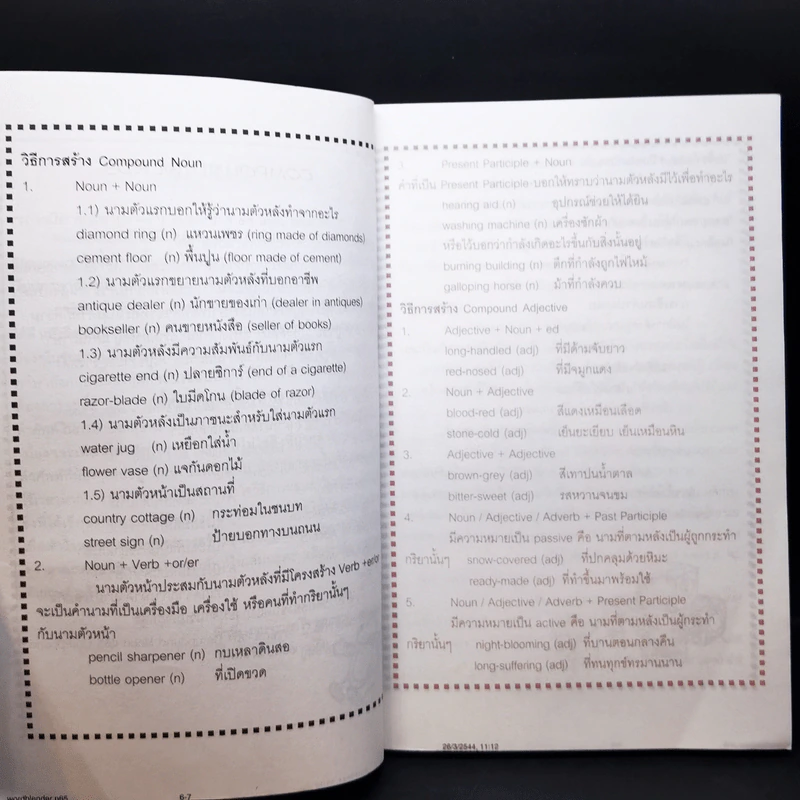 วิธีการสร้าง Compound Noun
1. Noun + Noun
1.1) นามตัวแรกบอกให้รู้ว่านามตัวหลังทำจากอะไร
diamond ring (n) แหวนเพชร (ring made of diamonds)
cement floor (n) พื้นปูน (floor made of cement)
1.2) นามตัวแรกขยายนามตัวหลังที่บอกอาชีพ
antique dealer (n) นักขายของเก่า (dealer in antiques)
bookseller (n) คนขายหนังสือ (seller of books)
1.3) นามตัวหลังมีความสัมพันธ์กับนามตัวแรก
cigarette end (n) ปลายซิการ์ (end of a cigarette)
razor-blade (n) ใบมีดโกน (blade of razor)
1.4) นามตัวหลังเป็นภาชนะสำหรับใส่นามตัวแรก
water jug (n) เหยือกใส่น้ำ
flower vase (n) แจกันดอกไม้
1.5) นามตัวหน้าเป็นสถานที่
country cottage (n) กระท่อมในชนบท
street sign (n) ป้ายบอกทางบนถนน
2. Noun + Verb +or/er
นามตัวหน้าประสมกับนามตัวหลังที่มีโครงสร้าง Verb +er/or
จะเป็นคำนามที่เป็นเครื่องมือ เครื่องใช้ หรือคนที่ทำกริยานั้นๆ
กับนามตัวหน้า
pencil sharpener (n) กบเหลาดินสอ
bottle opener (n) ที่เปิดขวด
6-7
3. Present Participle + Noun
คำที่เป็น Present Participle บอกให้ทราบว่านามตัวหลังมีไว้เพื่อทำอะไร
hearing aid (n) อุปกรณ์ช่วยให้ได้ยิน
washing machine (n) เครื่องซักผ้า
หรือไว้บอกว่ากำลังเกิดอะไรขึ้นกับสิ่งนั้นอยู่
burning building (n) ตึกที่กำลังถูกไฟไหม้
galloping horse (n) ม้าที่กำลังควบ
วิธีการสร้าง Compound Adjective
1. Adjective + Noun + ed
long-handled (adj) ที่มีด้ามจับยาว
red-nosed (adj) ที่มีจมูกแดง
2. Noun + Adjective
blood-red (adj) สีแดงเหมือนเลือด
stone-cold (adj) เย็นยะเยียบ เย็นเหมือนหิน
3. Adjective + Adjective
brown-grey (adj) สีเทาปนน้ำตาล
bitter-sweet (adj) รสหวานจนขม
4. Noun / Adjective / Adverb + Past Participle
มีความหมายเป็น passive คือ นามที่ตามหลังเป็นผู้ถูกกระทำ
กริยานั้นๆ snow-covered (adj) ที่ปกคลุมด้วยหิมะ
ready-made (adj) ที่ทำขึ้นมาพร้อมใช้
5. Noun / Adjective / Adverb + Present Participle
มีความหมายเป็น active คือ นามที่ตามหลังเป็นผู้กระทำ
กริยานั้นๆ night-blooming (adj) ที่บานตอนกลางคืน
long-suffering (adj) ที่ทนทุกข์ทรมานนาน
26/3/2544, 11:12